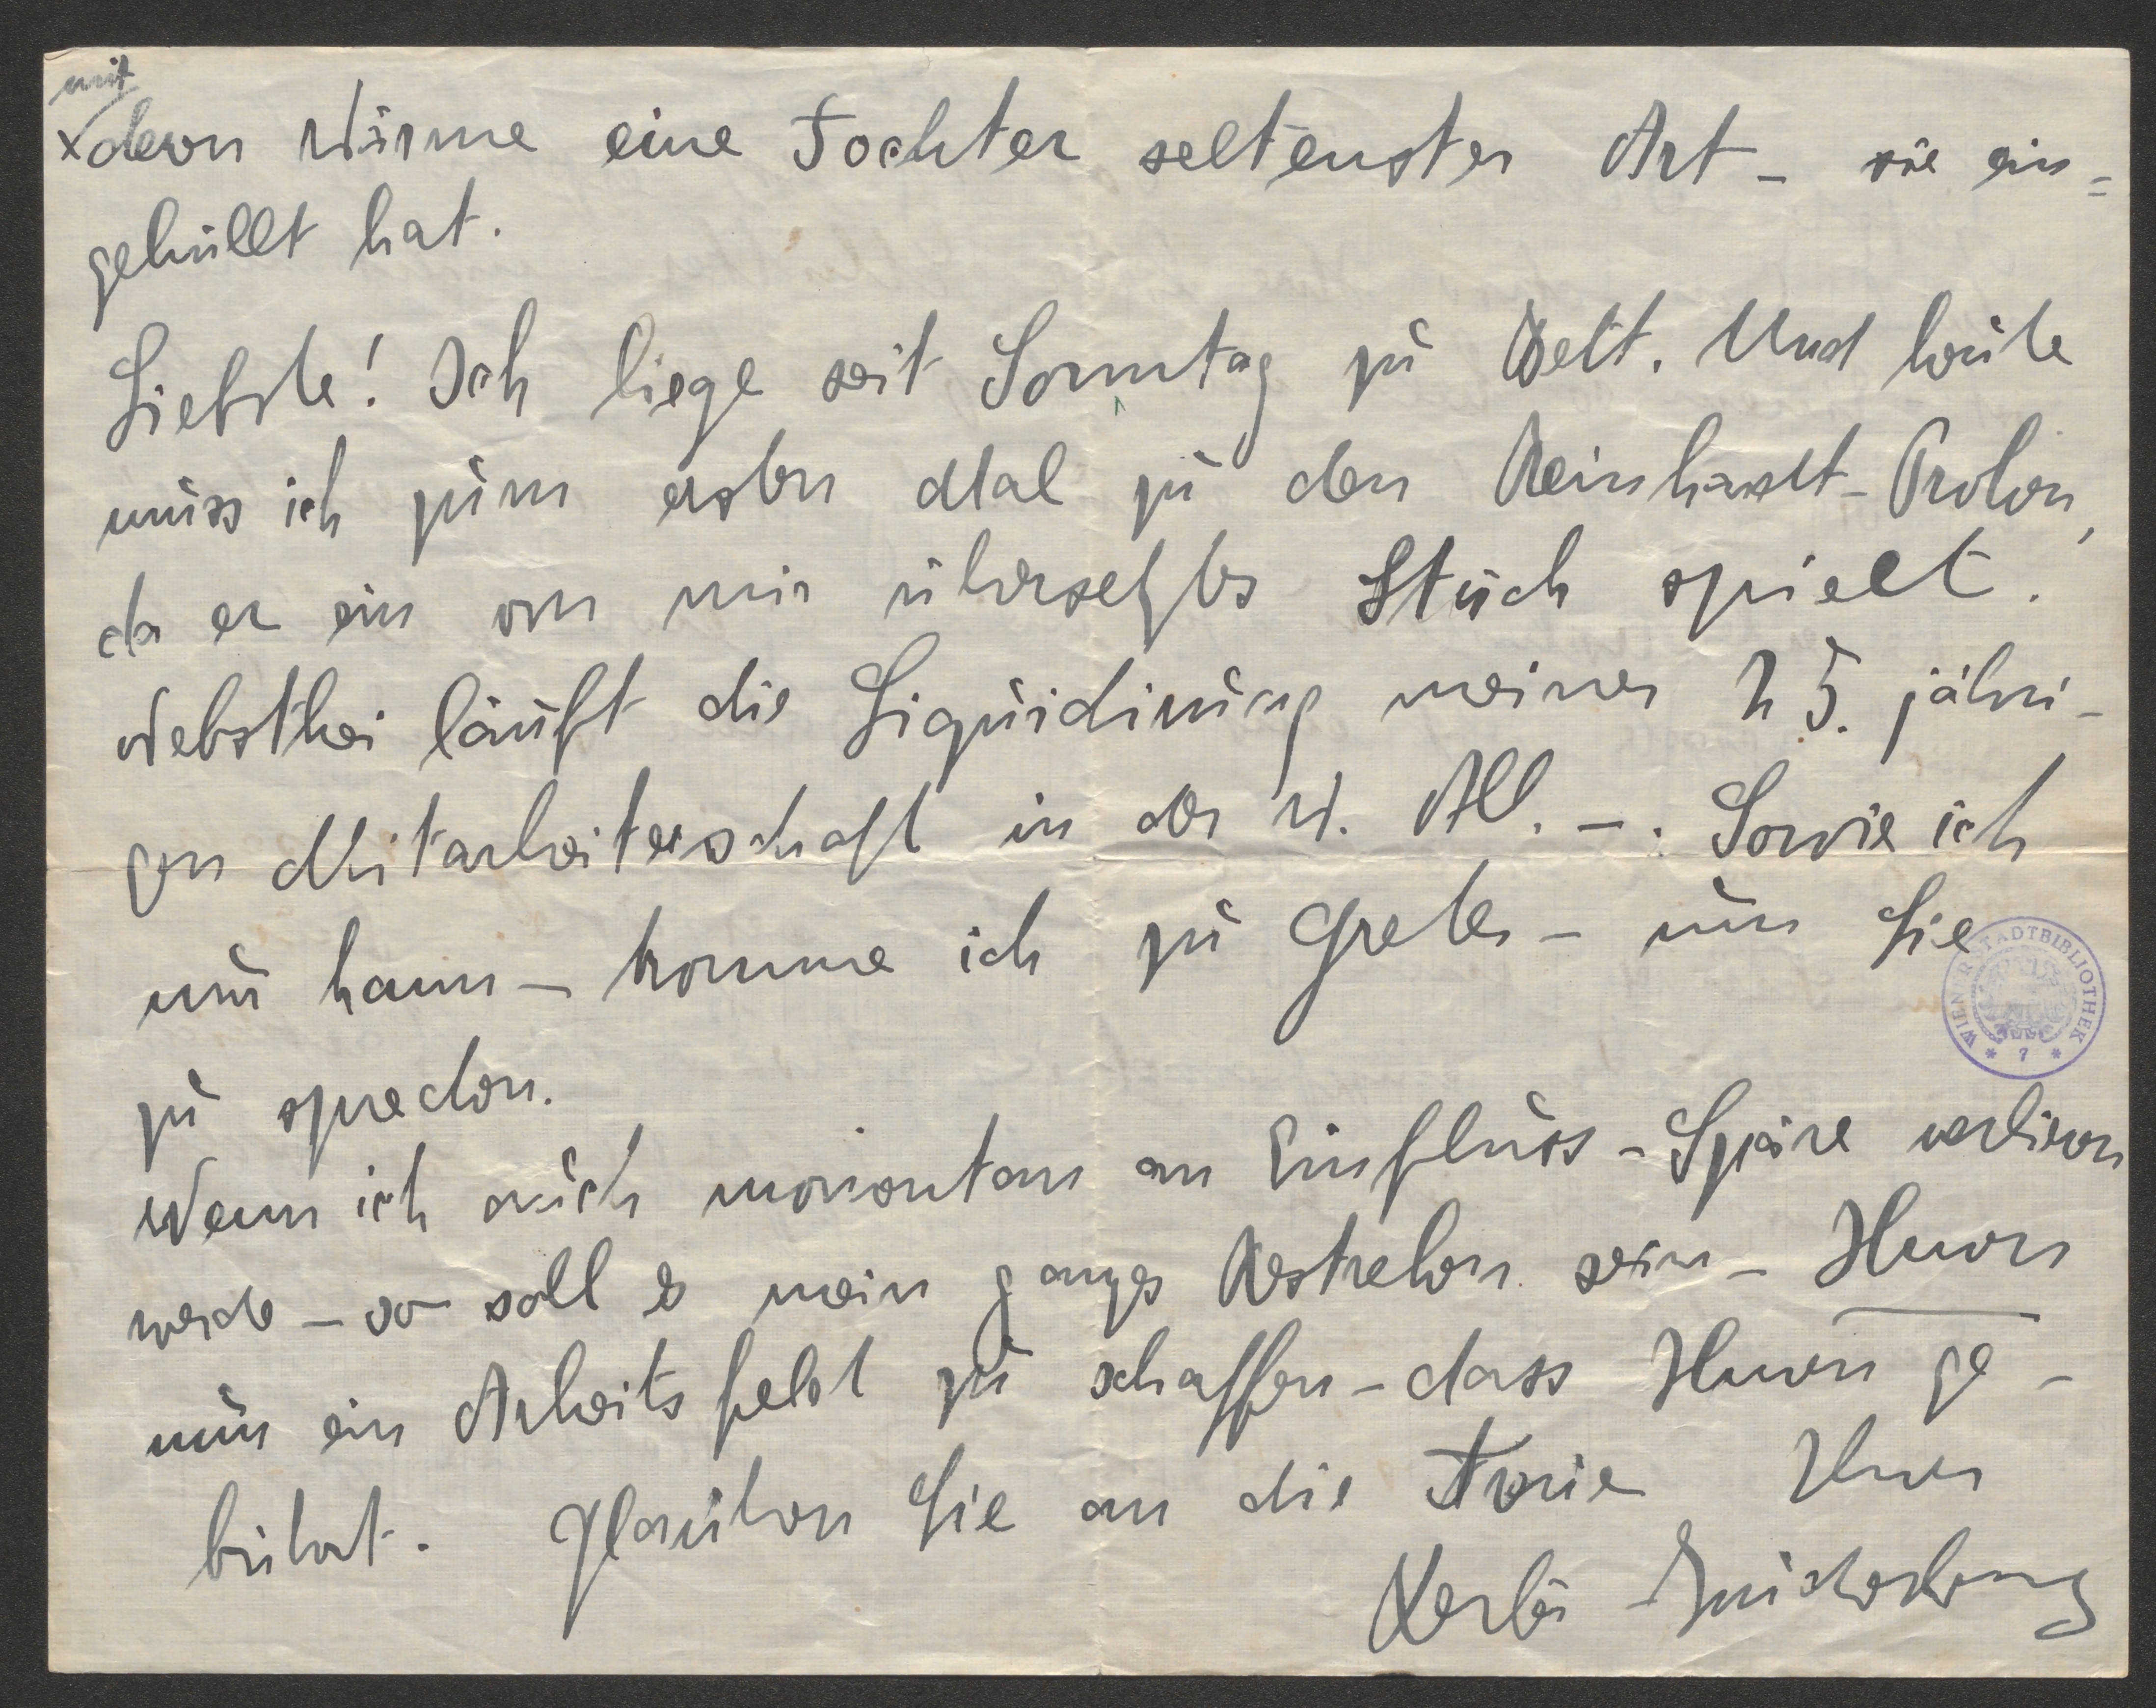 mit
x deren Wärme eine Tochter seltenster Art – sie ein=
gehüllt hat.
Liebste! Ich liege seit Sonntag zu Bett. Und heute
muss ich zum ersten Mal zu den Reinhardt-Proben,
da er ein von mir übersetztes Stück spielt.
Nebstbei läuft die Liquidirung meiner 25. jähri-
gen Mitarbeiterschaft in der W. All. –. Sowie ich
nur kann – komme ich zu Grete – um Sie
zu sprechen.
Wenn ich auch momentan an Einfluss-Späre verlieren
werde – so soll es mein ganzes Bestreben sein – Ihnen
nun ein Arbeitsfeld zu schaffen – dass Ihnen ge-
bührt. Glauben Sie an die Treue Ihrer
Berta Zuckerkandl
WIENER STADTBIBLIOTHEK
* 7 *